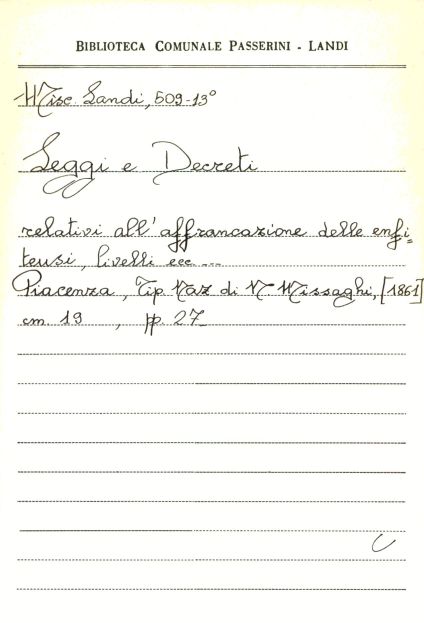 BIBLIOTECA COMUNALE PASSERINI - LANDI
Misc. Landi, 509-13°
Leggi e Decreti
relativi all'affrancazione delle enfi=
teusi, livelli ecc ...
Piacenza, Tip. Naz. di N. Missaghi, [1861]
cm. 19 , pp. 27